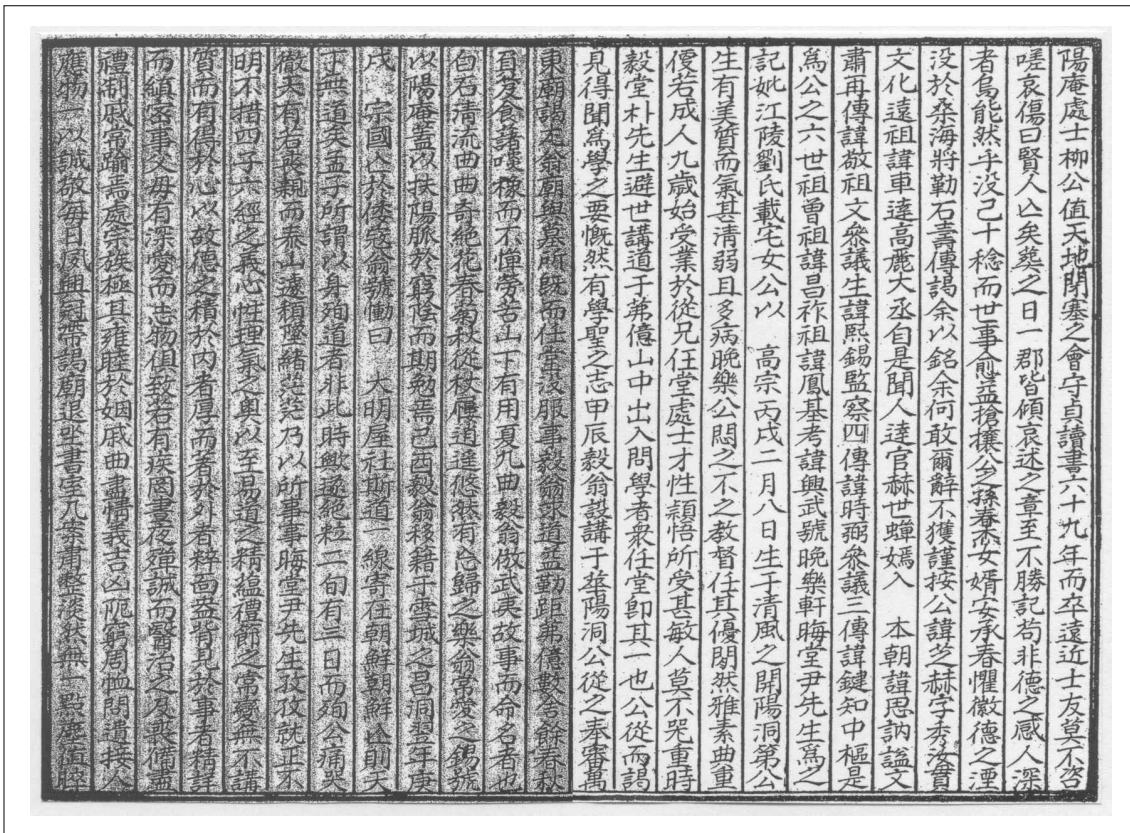 陽庵處士柳公值天地閉塞之會守貞讀書六十九年而卒遠近士友莫不咨
嗟哀傷曰賢人亡矣葬之日一郡皆傾哀述之章至不勝記苟非德之感人深
者烏能然乎没已十稔而世事愈益搶攘公之孫春杰女婿安承春懼徽德之湮
没於桑海將勒石壽傳謁余以銘余何敢爾辭不獲謹按公諱芝赫字季洛貫
文化遠祖諱車達高麗大丞自是聞人達官赫世蟬嫣入 本朝諱思訥諡文
肅再傳諱敬祖文參議生諱熙錫監察四傳諱時弼參議三傳諱鍵知中樞是
爲公之六世祖曾祖諱昌祚祖諱鳳基考諱興武號晚樂軒晦堂尹先生爲之
記妣江陵劉氏載宅女公以 高宗丙戌二月八日生于清風之開陽洞第公
生有美質而氣甚清弱且多病晚樂公悶之不之教督任其優閒然雅素典重
儼若成人九歲始受業於從兄任堂處士才性穎悟所受甚敏人莫不咒重時
毅堂朴先生避世講道于弟億山中出入問學者衆任堂卽其一也公從而謁
見得聞爲學之要慨然有學聖之志甲辰毅翁設講于華陽洞公從之奉審萬
東廟謁尤翁廟與墓所既而任堂没服事毅翁求道益勤距弟億數舍餘春秋
負芨食藷啖糠而不憚勞苦山下有用夏九曲毅翁倣武夷故事而命名者也
白石清流曲曲奇絕花春菊秋從杖屨逍遥悠然有忘歸之樂翁常愛之錫號
以陽庵蓋以扶陽脈於窮陰而期勉焉己酉毅翁移籍于雪城之昌洞翌年庚
戌 宗國亡於倭寇翁號慟曰 大明屋社斯道一線寄在朝鮮朝鮮亡則天
下無道矣孟子所謂以身殉道者非此時歟遂絕粒二旬有三日而殉公痛哭
徹天有若喪親而泰山遽頹墜緒茫茫乃以所事事晦堂尹先生孜孜就正不
明不措四子六經之義心性理氣之奧以至易道之精蘊禮節之常變無不講
質而有得於心以故德之積於内者厚而著於外者粹面益背見於事者精詳
而縝密事父母有深愛而志物俱致若有疾罔晝夜殫誠而醫治之及艱備盡
禮制戚常踰焉處宗族極其雍睦於姻戚曲盡情義吉凶阨窮周恤問遺接人
應物一以誠敬每日夙興冠帶謁廟退坐書室几案肅整淡然無一點塵值